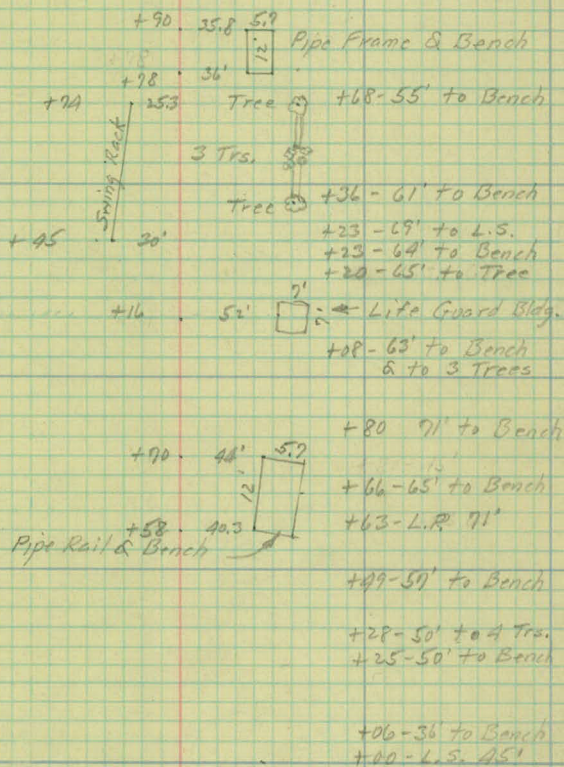 +90 35.8 5.7
12' Pipe Frame & Bench
+78 36'
+74 25.3 Tree +68-55' to Bench
Swing Rack
3 Trs.
Tree +36-61' to Bench
+23-69' to L.S.
+45 30' +23-64' to Bench
+20-65' to Tree
7'
+16 52' 7' Life Guard Bldg.
+08-63' to Bench
& to 3 Trees
+80 71' to Bench
+70 44' 5.7
12' +66-65' to Bench
+58 40.3 +63-L.P. 71'
Pipe Rail & Bench
+49-57' to Bench
+28-50' to 4 Trs.
+25-50' to Bench
+06-36' to Bench
+00-L.S. 45'